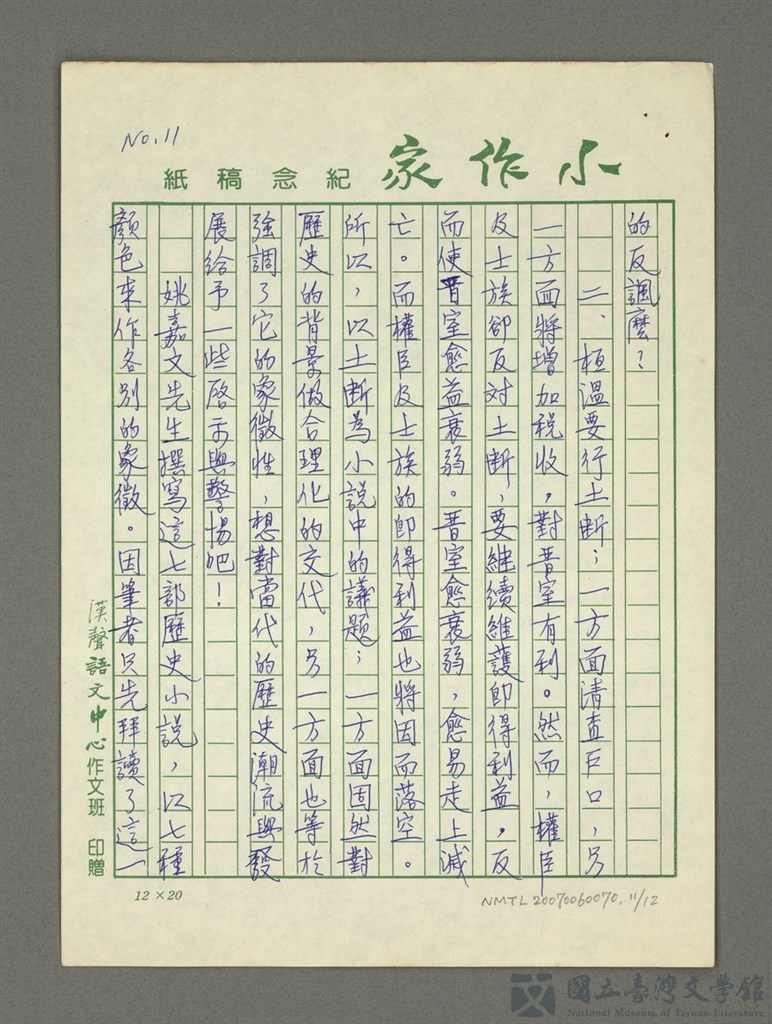 No. 11
小作家紀念稿紙
的反諷麼?
二、桓溫要行土斷;一方面清查戶口,另
一方面將增加稅收,對晉室有利。然而,權臣
及士族卻反對土斷,要繼續維護即得利益,反
而使晉室愈益衰弱。晉室愈衰弱,愈易走上滅
亡。而權臣及士族的即得利益也將因而落空。
所以,以土斷為小說中的議題;一方面固然對
歷史的背景做合理化的交代,另一方面也等於
強調了它的象徵性,想對當代的歷史潮流與發
展給予一些啓示與警惕吧!
姚嘉文先生撰寫這七部歷史小說,以七種
顏色來作各別的象徵。因筆者只先拜讀了這一
漢聲語文中心作文班 印贈
12×20
NMTL 20070060070, 11/12
國立臺灣文學館
National Museum of Taiwan Literature